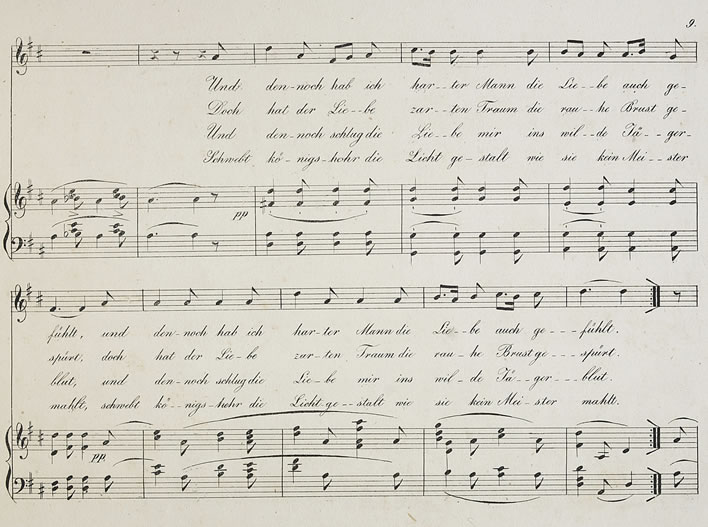 9.
Und den-noch hab ich har--ter Mann die Lie--be auch ge-
Doch hat der Lie--be zar--ten Traum die rau--he Brust ge-
Und den-noch schlug die Lie--be mir ins wil--de Jä--ger-
Schwebt kö-nigs-hohr die Licht ge-stalt wie sie kein Mei--ster
pp
fühlt, und den-noch hab ich har-ter Mann die Lie--be auch ge---fühlt.
spürt, doch hat der Lie-be zar-ten Traum die rau-he Brust ge---spürt.
blut, und den-noch schlug die Lie-be mir ins wil-de Jä-ger---blut.
mahlt, schwebt kö--nigs-hohr die Licht-ge-stalt wie sie kein Mei-ster mahlt.
pp.